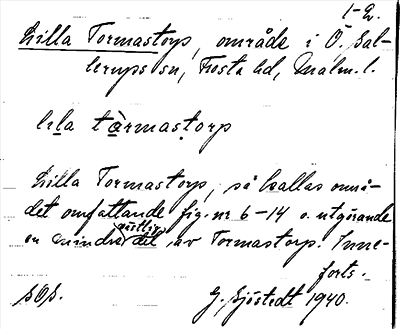 1-2.
Lilla Tormastorp, område i Ö. Sal-
lerups sn, Frosta hd, Malm. l.
lıla tàrmastɔrp
Lilla Tormastorp, så kallas områ-
det omfattande fig. nr 6-14 o. utgörande
en mindre östlig del av Tormastorp. Inne-
forts.
SOS. G. Sjöstedt 1940.